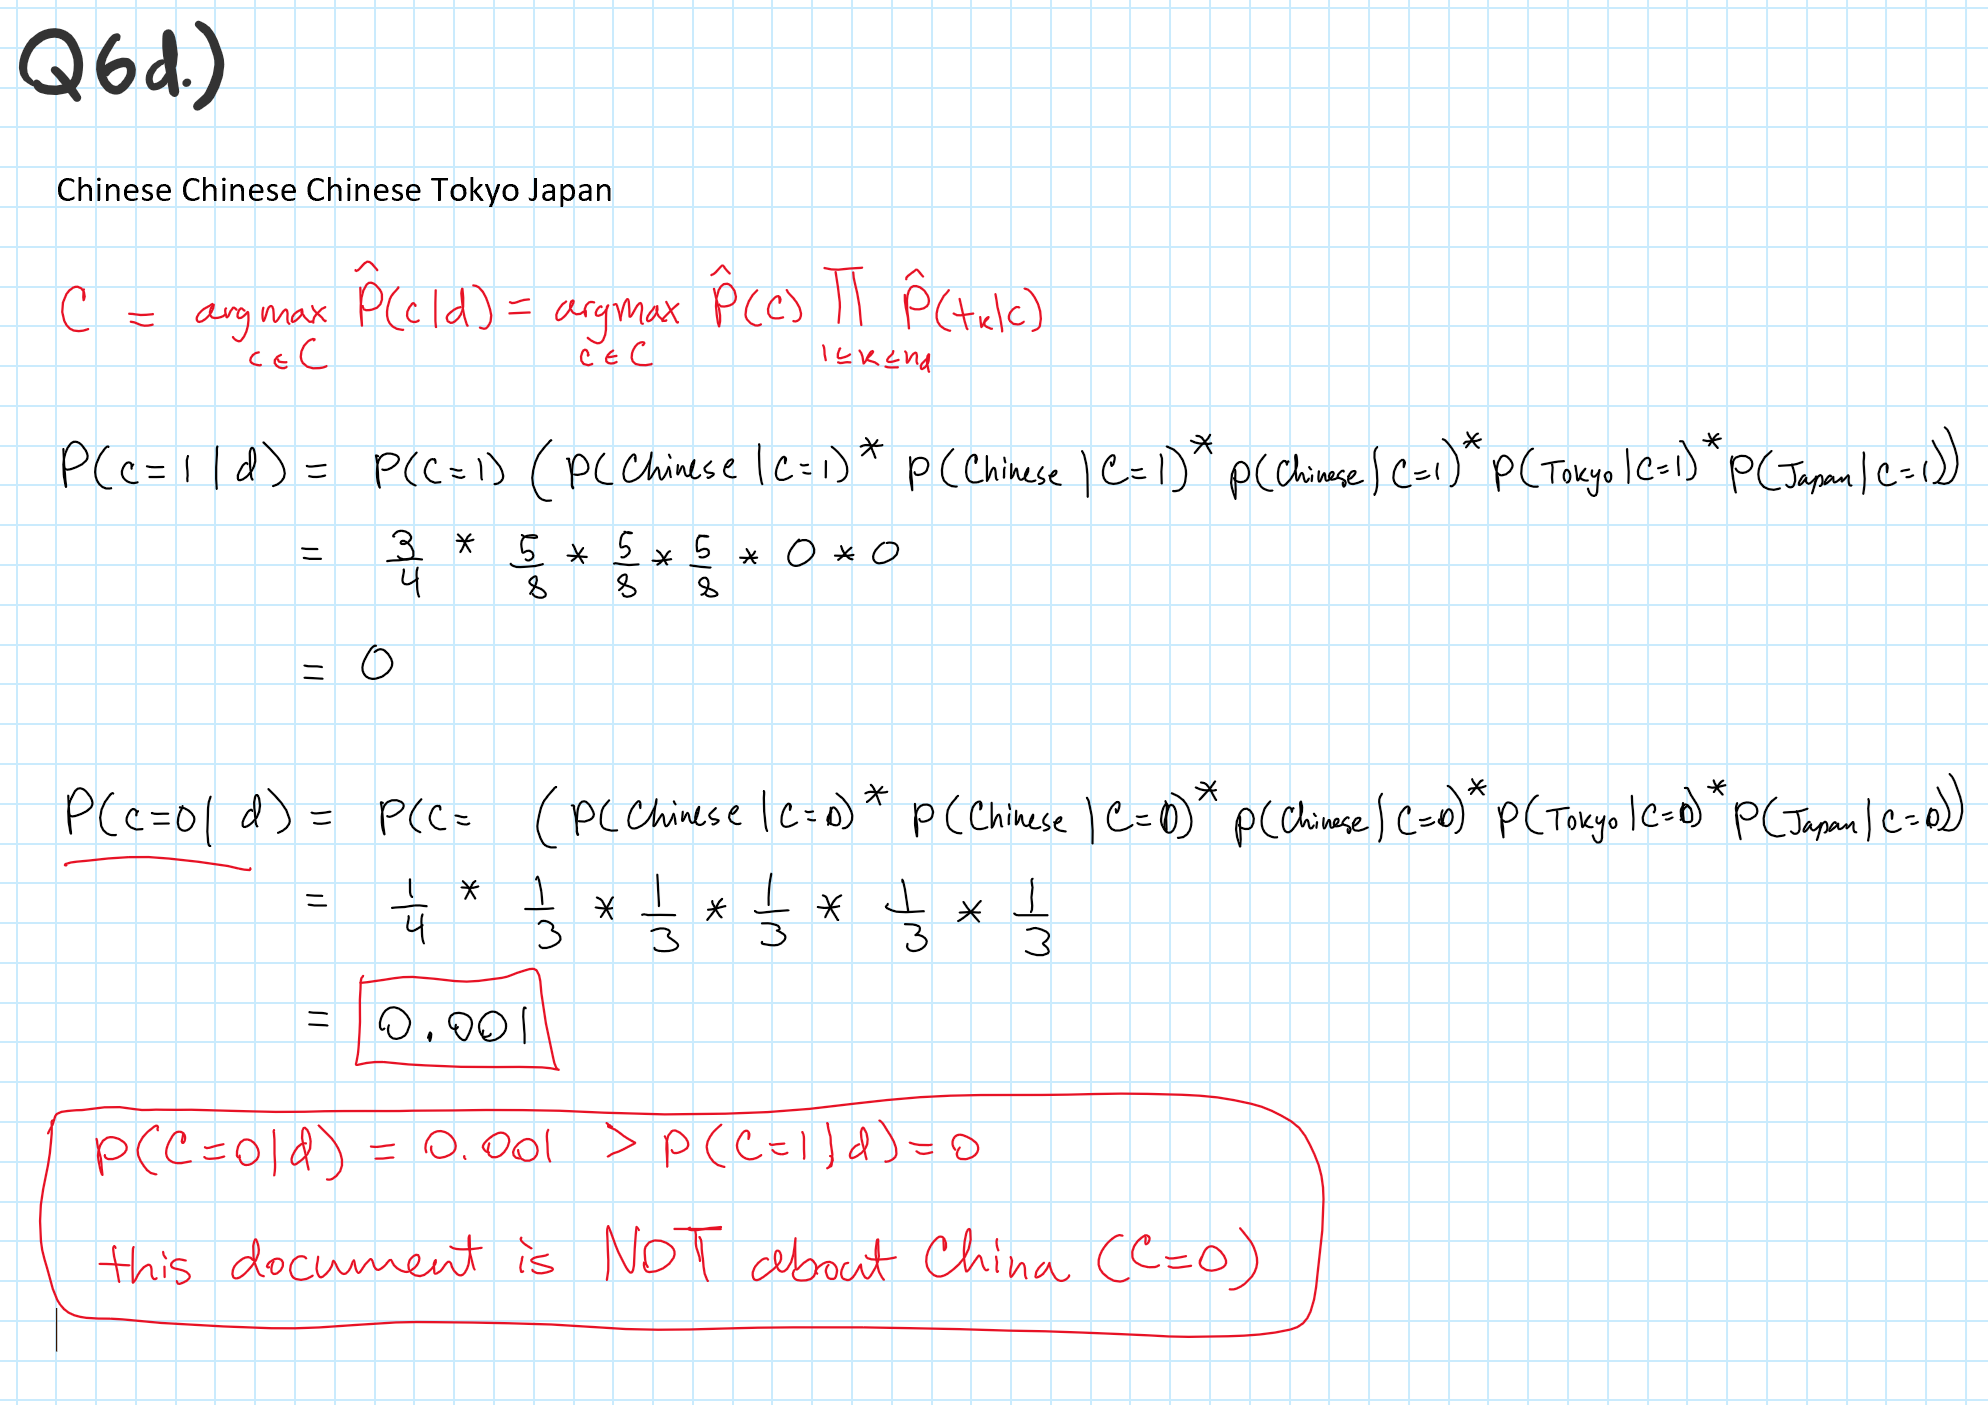 Q6d.)
Chinese Chinese Chinese Tokyo Japan
C = argmax P̂(c|d) = argmax P̂(c) ∏ P̂(tₖ|c)
c ∈ C c ∈ C 1≤k≤nd
P(c=1|d) = P(C=1) (P(Chinese|C=1)* P(Chinese|C=1)* P(Chinese|C=1)* P(Tokyo|C=1)* P(Japan|C=1))
= 3/4 * 5/8 * 5/8 * 5/8 * 0 * 0
= 0
P(c=0|d) = P(C= (P(Chinese|C=0)* P(Chinese|C=0)* P(Chinese|C=0)* P(Tokyo|C=0)* P(Japan|C=0))
= 1/4 * 1/3 * 1/3 * 1/3 * 1/3 * 1/3
= 0.001
P(C=0|d) = 0.001 > P(C=1|d)=0
this document is NOT about China (C=0)